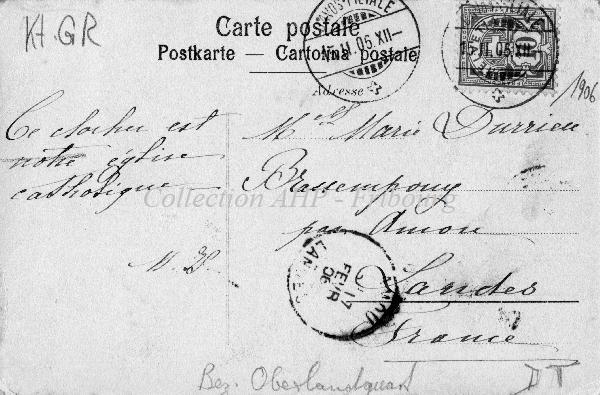 Kt. GR
Carte postale
Postkarte — Cartolina postale
Adresse
1906
Ce clocher est
notre église
catholique
M. D.
Melle Marie Durrieu
Brassempouy
par Amou
Landes
France
Collection AHP - Fribourg
17
FEVR
06
LANDES
Bez. Oberlandquart
DT